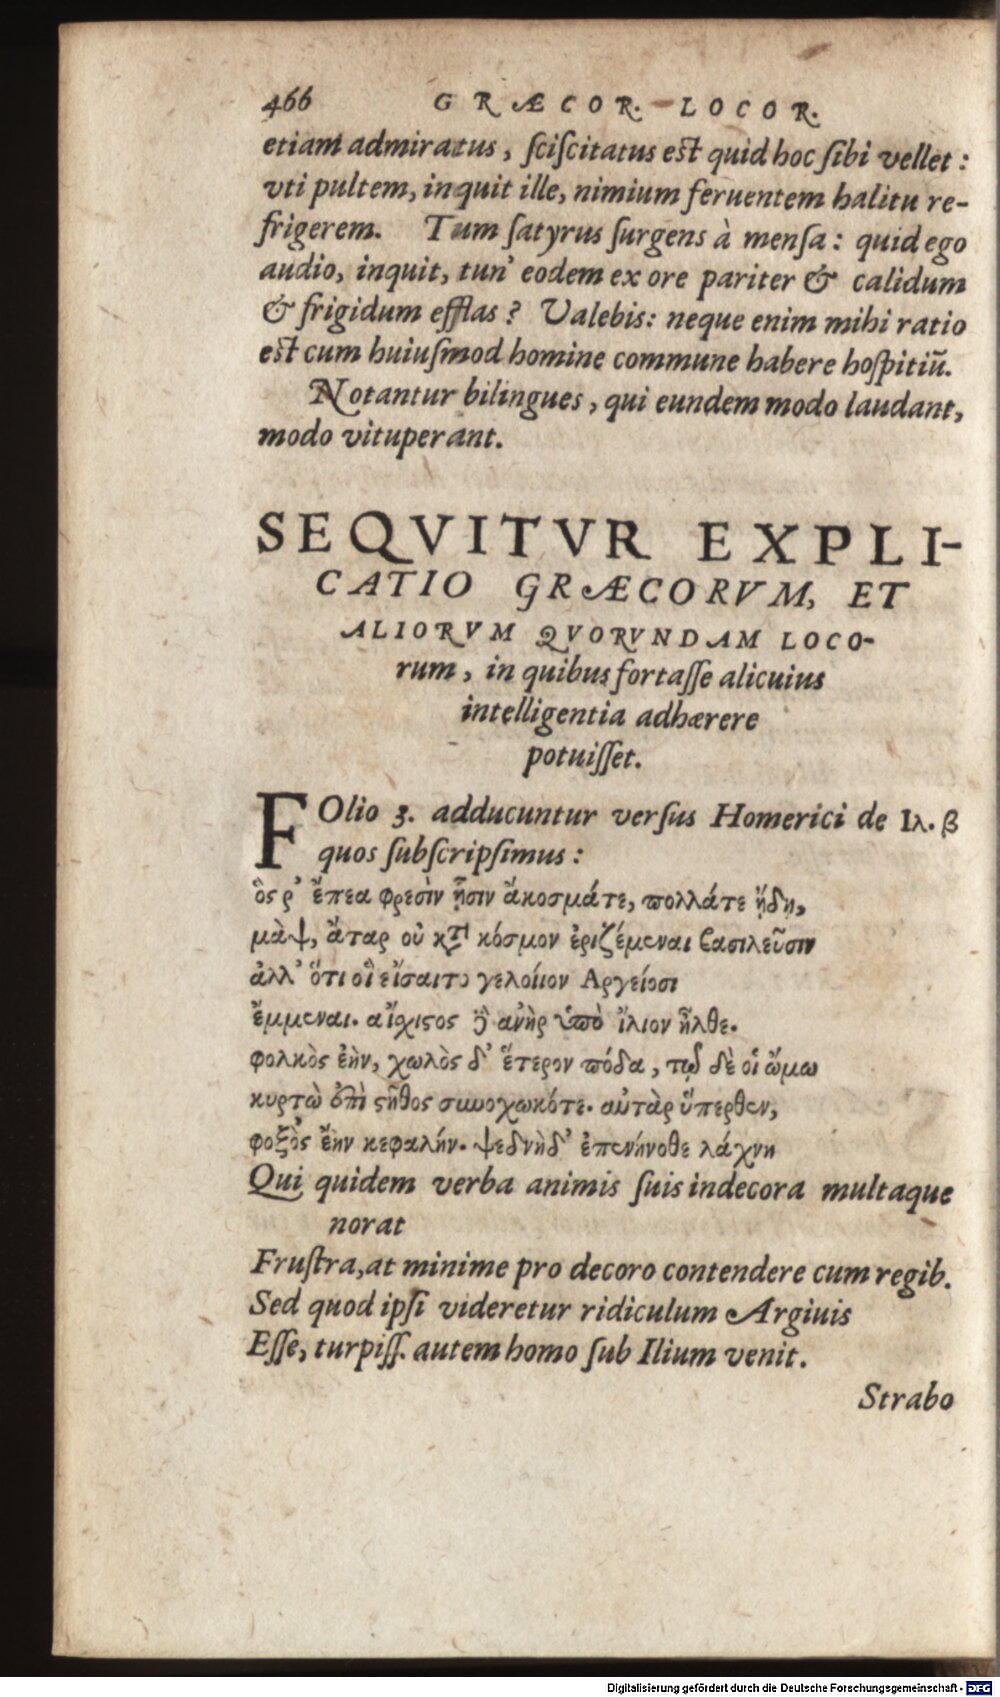 466 GRÆCOR. LOCOR.
etiam admiratus, ſciſcitatus eſt quid hoc ſibi vellet:
vti pultem, inquit ille, nimium feruentem halitu re-
frigerem. Tum ſatyrus ſurgens à menſa: quid ego
audio, inquit, tun' eodem ex ore pariter & calidum
& frigidum efflas? Valebis: neque enim mihi ratio
eſt cum huiuſmod homine commune habere hoſpitiũ.
Notantur bilingues, qui eundem modo laudant,
modo vituperant.
SEQVITVR EXPLI-
CATIO GRÆCORVM, ET
ALIORVM QVORVNDAM LOCO-
rum, in quibus fortaſſe alicuius
intelligentia adhærere
potuiſſet.
FOlio 3. adducuntur verſus Homerici de Ιλ. β
quos ſubſcripſimus:
ὃς ρ' ἔπεα φρεσὶν ᾗσιν ἄκοσμάτε, πολλάτε ᾔδη,
μὰψ, ἄταρ οὐ κτ̀ κόσμον ἐριζέμεναι βασιλεῦσιν
ἀλλ' ὅτι οἱ εἴσαιτο γελοίιον Αργείοσι
ἔμμεναι. αἴχιϛος ὃ ανὴρ ὑπὸ ἴλιον ἦλθε.
φολκὸς ἐὴν, χωλὸς δ' ἕτερον πόδα, τὼ δὲ οἱ ὤμω
κυρτὼ ἐπὶ ϛῆθος συνοχωκότε. αὐτὰρ ὕπερθεν,
φοξὸς ἔην κεφαλήν. ψεδνὴδ' ἐπενήνοθε λάχνη
Qui quidem verba animis ſuis indecora multaque
norat
Fruſtra, at minime pro decoro contendere cum regib.
Sed quod ipſi videretur ridiculum Argiuis
Eſſe, turpiſſ. autem homo ſub Ilium venit.
Strabo
Digitalisierung gefördert durch die Deutsche Forschungsgemeinschaft - DFG